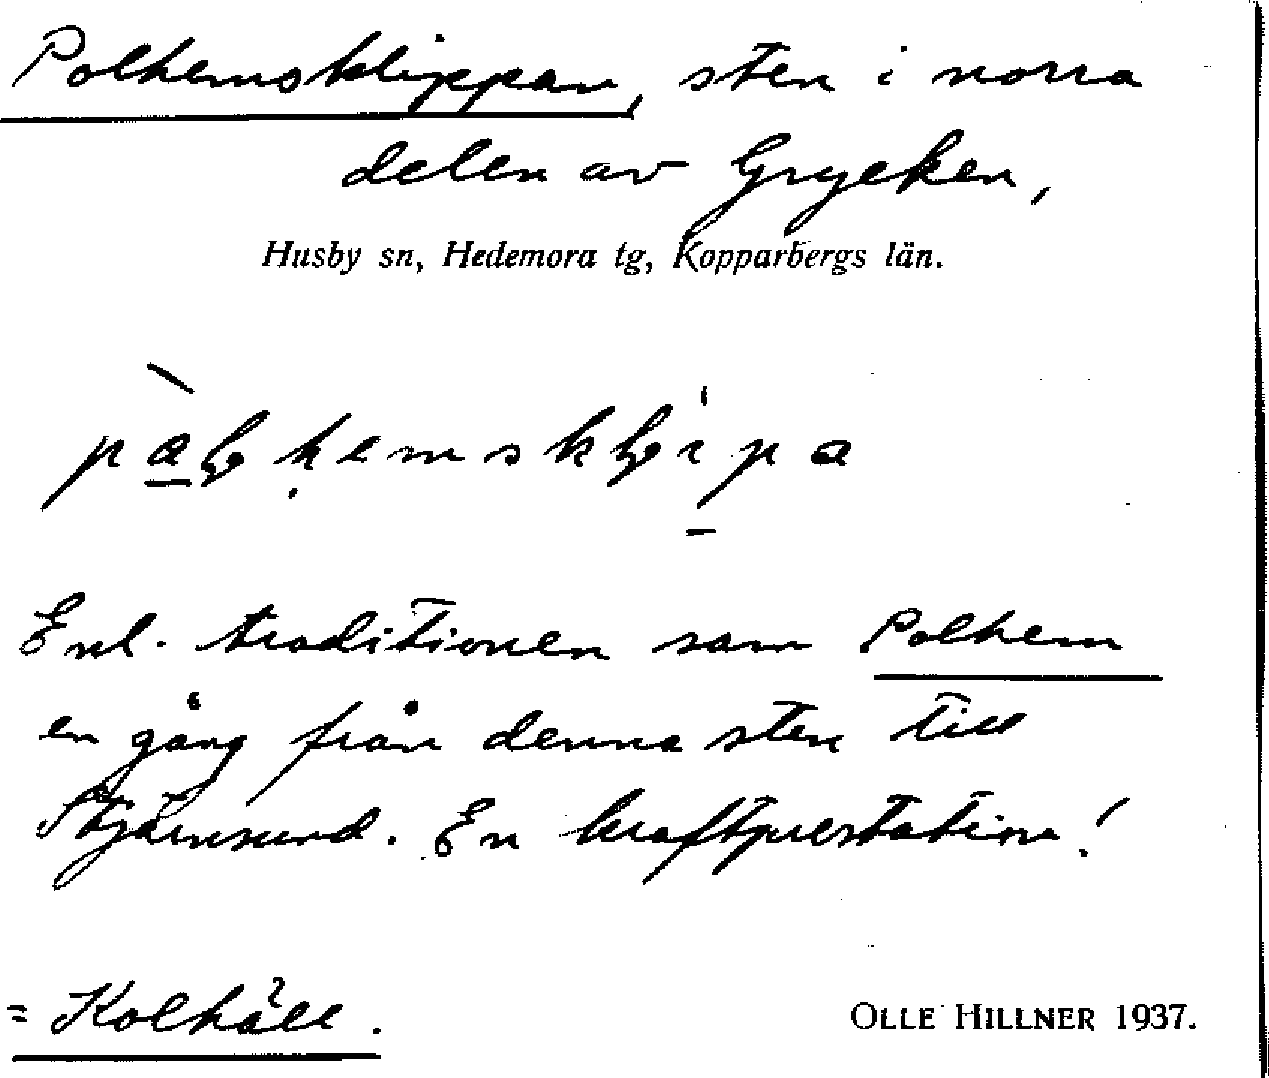 Polhemsklippan, sten i norra
delen av Grycken,
Husby sn, Hedemora tg, Kopparbergs län.
Enl. traditionen sam Polhem
en gång från denna sten till
Stjärnsund. En kraftprestation!
= Kolhäll.
OLLE HILLNER 1937.